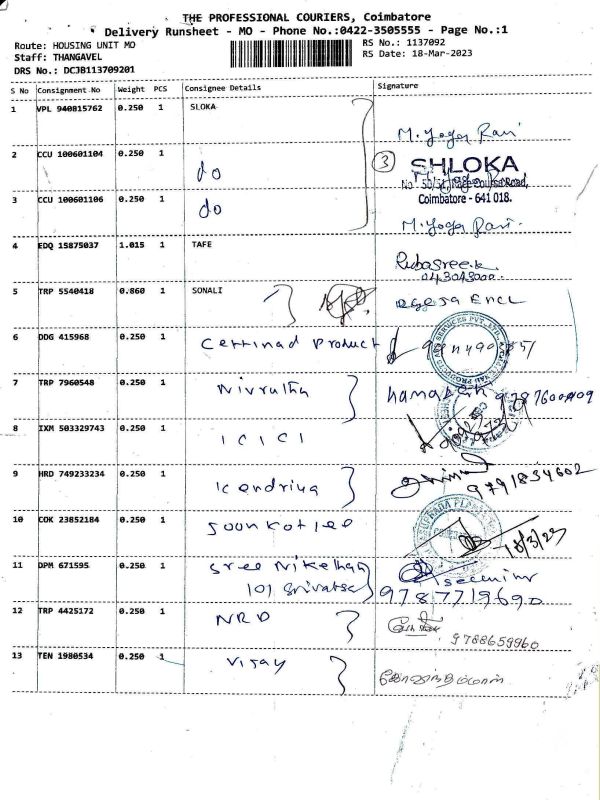 THE PROFESSIONAL COURIERS, Coimbatore
Delivery Runsheet - MO - Phone No.:0422-3505555 - Page No.:1
Route: HOUSING UNIT MO
RS No.: 1137092
Staff: THANGAVEL
RS Date: 18-Mar-2023
DRS No.: DCJB113709201
S No Consignment No Weight PCS Consignee Details Signature
1 VPL 940815762 0.250 1 SLOKA
M. Yoga Rani
2 CCU 100601104 0.250 1 do
3
SHLOKA
3 CCU 100601106 0.250 1 do
Coimbatore - 641 018.
M. Yoga Rani
4 EDQ 15875037 1.015 1 TAFE
Rubasree.k
5 TRP 5540418 0.860 1 SONALI
6 DDG 415968 0.250 1 Cettinad Product
7 TRP 7960548 0.250 1 Nivrutha
8 IXM 503329743 0.250 1 ICICI
9 HRD 749233234 0.250 1 Kendriya
9791834602
10 COK 23852184 0.250 1
18/3/23
11 DPM 671595 0.250 1 Sree Nikethan
101 Srivatsa
9787719690
12 TRP 4425172 0.250 1 NRD
9788659960
13 TEN 1980534 0.250 1 Vijay